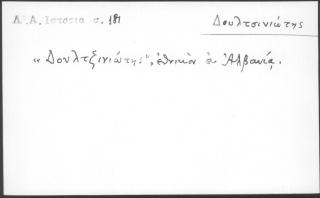 Α.Α. Ιστορία σ. 181
Δουλτσινιώτης
«Δουλτζινιώτης", ἐθνικὸν ἐν Ἀλβανίᾳ.